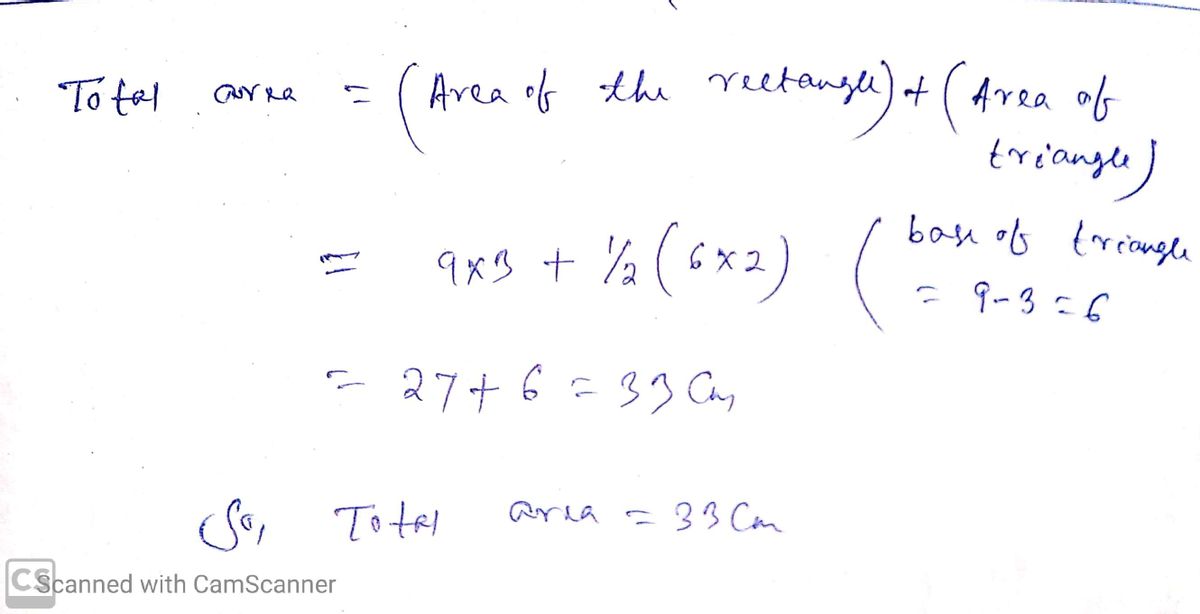 Total area = (Area of the rectangle) + (Area of
triangle)
= 9×3 + 1/2 (6×2) (base of triangle
= 9-3 = 6
= 27 + 6 = 33 Cm
So, Total area = 33 Cm
CS Scanned with CamScanner